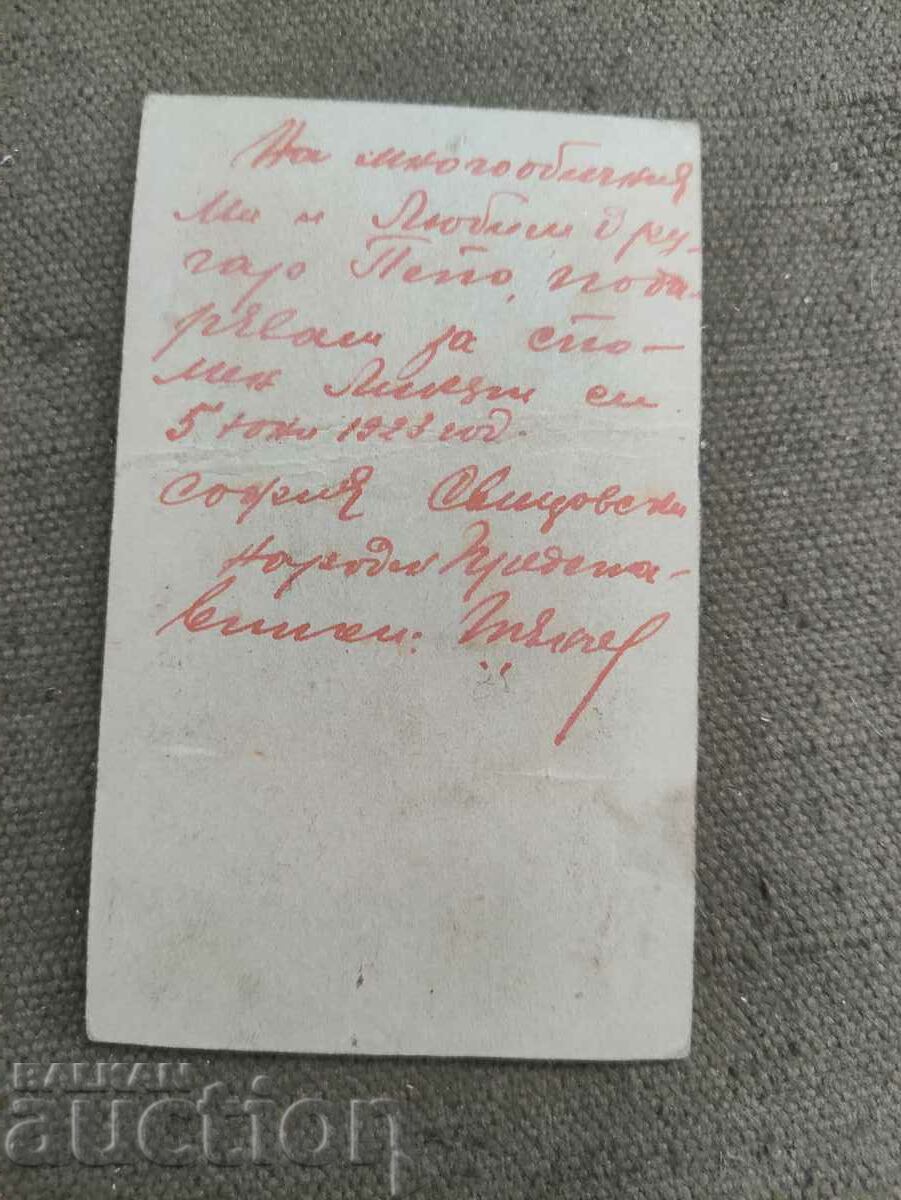 На многообичния
Ми и Любим дру-
гар Пепо, пода-
рявам за спо-
мен Ликът си
5 юни 1923 год.
София Свищовски
народен Предста-
вител:
BALKAN
auction